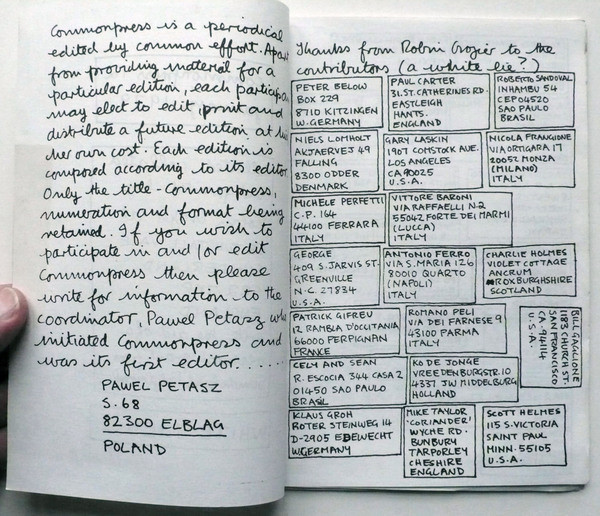 Commonpress is a periodical
edited by common effort. Apart
from providing material for a
particular edition, each participant
may elect to edit, print and
distribute a future edition at his
her own cost. Each edition is
composed according to its editor
Only the title - Commonpress,
numeration and format being
retained. If you wish to
participate in and/or edit
Commonpress then please
write for information to the
coordinator, Pawel Petasz who
initiated Commonpress and
was its first editor......
PAWEL PETASZ
S. 68
82300 ELBLAG
POLAND
Thanks from Robin Crozier to the
contributors (a white lie?)
PETER BELOW
BOX 229
8710 KITZINGEN
W. GERMANY
PAUL CARTER
31. ST. CATHERINES RD.
EASTLEIGH
HANTS.
ENGLAND
ROBERTO SANDOVAL
INHAMBU 54
CEP 04520
SAO PAULO
BRASIL
NIELS LOMHOLT
AKJAERVEJ 49
FALLING
8300 ODDER
DENMARK
GARY LASKIN
1907 COMSTOCK AVE.
LOS ANGELES
CA 90025
U.S.A.
NICOLA FRANGIONE
VIA ORTIGARA 17
20052 MONZA
(MILANO)
ITALY
MICHELE PERFETTI
C.P. 164
44100 FERRARA
ITALY
VITTORE BARONI
VIA RAFFAELLI N.2
55042 FORTE DEI MARMI
(LUCCA)
ITALY
GEORGE
409 S. JARVIS ST.
GREENVILLE
N.C. 27834
U.S.A.
ANTONIO FERRO
VIA S. MARIA 126
80010 QUARTO
(NAPOLI)
ITALY
CHARLIE HOLMES
VIOLET COTTAGE
ANCRUM
ROXBURGHSHIRE
SCOTLAND
PATRICK GIFREU
12 RAMBLA D'OCCITANIA
66000 PERPIGNAN
FRANCE
ROMANO PELI
VIA DEI FARNESE 9
43100 PARMA
ITALY
BILL GAGLIONE
1183 CHURCH ST.
SAN FRANCISCO
CA. 94114
U.S.A.
CELY AND SEAN
R. ESCOCIA 344 CASA 2
01450 SAO PAULO
BRASIL
KO DE JONGE
VREEDENBURGSTR. 10
4337 JW MIDDELBURG
HOLLAND
KLAUS GROH
ROTER STEINWEG 14
D-2905 EDEWECHT
W. GERMANY
MIKE TAYLOR
'CORIANDER'
WYCHE RD.
BUNBURY
TARPORLEY
CHESHIRE
ENGLAND
SCOTT HELMES
115 S. VICTORIA
SAINT PAUL
MINN. 55105
U.S.A.